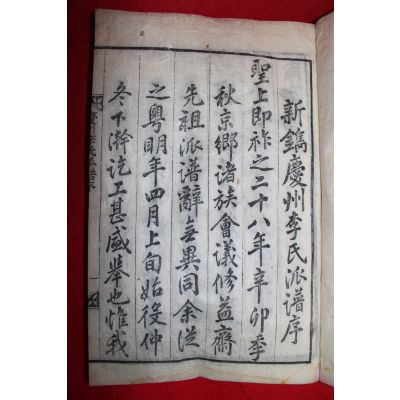 新鐫慶州李氏派譜序
聖上即祚之二十八年辛卯季
秋京鄉諸族會議修益齋
先祖派譜辭無異同余從
之粤明年四月上旬始役仲
冬下澣訖工甚盛舉也惟我